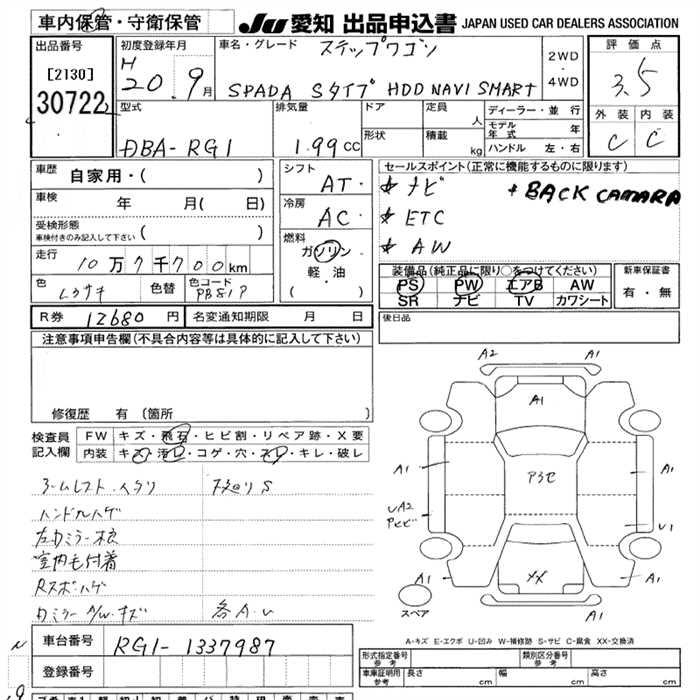 車内保管・守衛保管
JU 愛知 出品申込書 JAPAN USED CAR DEALERS ASSOCIATION
出品番号
[2130]
30722
初度登録年月
H 20. 9月
車名・グレード ステップワゴン
SPADA Sタイプ HDD NAVI SMART
2WD・4WD
評価点
3.5
外装 内装
C C
型式
DBA-RG1
排気量
1.99cc
ドア
形状
定員 人
積載 kg
ディーラー・並行
モデル年式 年
ハンドル 左・右
車歴 自家用・( )
車検 年 月( 日)
受検形態
車検付きのみ記入して下さい ( )
走行 10万7千700km
色 色替 色コード
PB81P
シフト AT・
冷房 AC・
燃料
ガソリン
軽・油
・( )
セールスポイント(正常に機能するものに限ります)
ナビ BACK CAMARA
ETC
AW
装備品(純正品に限り○をつけてください)
PS PW エアB AW
SR ナビ TV カワシート
新車保証書
有・無
R券 12680円 名変通知期限 月 日
後日品
注意事項申告欄(不具合内容等は具体的に記入して下さい)
修復歴 有(箇所 )
検査員記入欄
FW キズ・飛石・ヒビ割・リペア跡・X要
内装 キズ・汚レ・コゲ・穴・スレ・キレ・破レ
下廻りS
ハンドルハゲ
室内毛付着
Rスポハゲ
各A.U
A2 A1
A1
A1
A1
UA2
U1
A1
A1
XX
スペア
A-キズ E-エクボ U-凹み W-補修跡 S-サビ C-腐食 XX-交換済
車台番号 RG1-1337987
登録番号
形式指定番号 参考
類別区分番号 参考
車庫証明用 参考 長さ cm 幅 cm 高さ cm